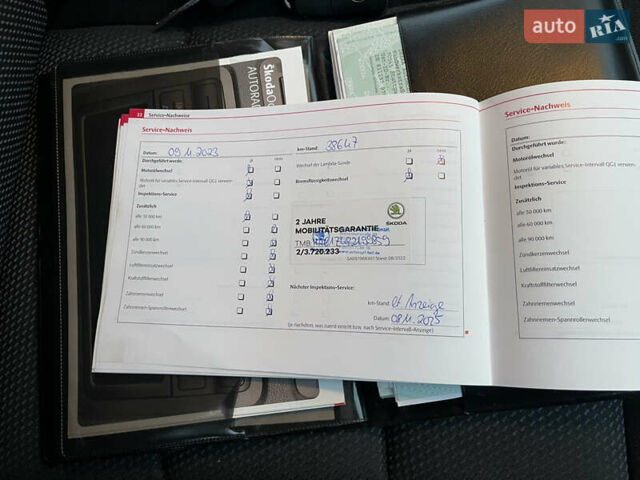 auto RIA.com
ŠkodaOc
AUTORAD
32 Service-Nachweise
Service-Nachweis
Datum: 09.11.2023
km-Stand: 38647
Durchgeführt wurde: ja nein
Motorölwechsel
Motoröl für variables Service-Intervall QG1 verwendet
Inspektions-Service
Zusätzlich
alle 30 000 km
alle 60 000 km
alle 90 000 km
Zündkerzenwechsel
Luftfiltereinsatzwechsel
Kraftstofffilterwechsel
Zahnriemenwechsel
Zahnriemen-Spannrollenwechsel
ja nein
Wechsel der Lambda-Sonde
Bremsflüssigkeitswechsel
2 JAHRE
MOBILITÄTSGARANTIE
ŠKODA
TMB
2/3.720.233
Nächster Inspektions-Service:
km-Stand: lt. Anzeige
Datum: 08.11.2025
(je nachdem, was zuerst eintritt bzw. nach Service-Intervall-Anzeige)
Service-Nachweis
Datum:
Durchgeführt wurde:
Motorölwechsel
Motoröl für variables Service-Intervall QG1 verwen-
det
Inspektions-Service
Zusätzlich
alle 30 000 km
alle 60 000 km
alle 90 000 km
Zündkerzenwechsel
Luftfiltereinsatzwechsel
Kraftstofffilterwechsel
Zahnriemenwechsel
Zahnriemen-Spannrollenwechsel